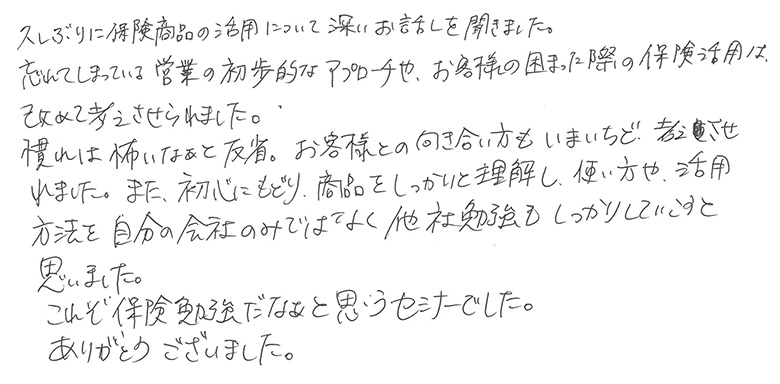 久しぶりに保険商品の活用について深いお話しを聞きました。
忘れてしまっている営業の初歩的なアプローチや、お客様の困まった際の保険活用は、
改めて考えさせられました。
慣れは怖いなぁと反省。お客様との向き合い方もいまいちど考えさせ
れました。また、初心にもどり、商品をしっかりと理解し、使い方や、活用
方法を自分の会社のみではなく他社勉強もしっかりしていこうと
思いました。
これぞ保険勉強だなぁと思うセミナーでした。
ありがとうございました。